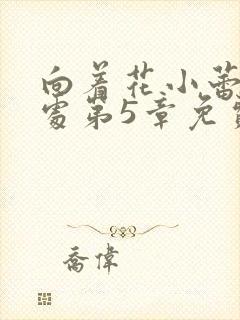 向着花小蕾
处第5章免费
乔伟